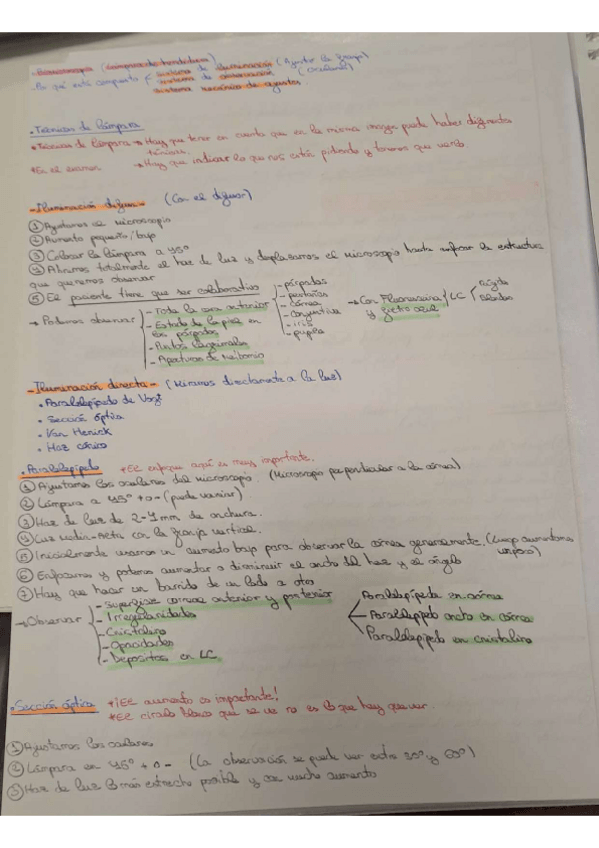 - Biomicroscopía (Lámpara de hendidura)
- Por qué está compuesto? sistema de iluminación (Ajustar la franja)
sistema de observación (Oculares)
sistema mecánico de ajustes
• Técnicas de Lámpara
* Técnicas de Lámpara → Hay que tener en cuenta que en la misma imagen puede haber diferentes
técnicas.
* En el examen → Hay que indicar lo que nos están pidiendo y tenemos que verlo
- Iluminación difusa - (Con el difusor)
① Ajustamos el microscopio
② Aumento pequeño/bajo
③ Colocar la lámpara a 45º
④ Abrimos totalmente el haz de luz y desplazamos el microscopio hasta enfocar la estructura
que queremos observar
⑤ El paciente tiene que ser colaborativo
→ Podemos observar
- Toda la cara anterior
- Estado de la piel en
los párpados
- Puntos lagrimales
- Aperturas de Meibomio
- párpados
- pestañas
- córnea
- conjuntiva
- iris
- pupila
→ Con Fluoresceína
y filtro azul
LC
rígida
blandas
- Iluminación directa - (Miramos directamente a la luz)
• Paralelepípedo de Vogt
• Sección óptica
• Van Herick
• Haz cónico
• Paralelepípedo * El enfoque aquí es muy importante.
① Ajustamos los oculares del microscopio. (Microscopio perpendicular a la córnea)
② Lámpara a 45º + o - (puede variar)
③ Haz de luz de 2-4mm de anchura.
④ Luz Media-Alta con la franja vertical.
⑤ Inicialmente usamos un aumento bajo para observar la córnea generalmente. (Luego aumentamos
un poco)
⑥ Enfocamos y podemos aumentar o disminuir el ancho del haz y el ángulo
⑦ Hay que hacer un barrido de un lado a otro
→ Observar
- Superficie corneal anterior y posterior
- Irregularidades
- Cristalino
- Opacidades
- Depósitos en LC.
Paralelepípedo en córnea
Paralelepípedo ancho en córnea
Paralelepípedo en cristalino
• Sección óptica * ¡El aumento es importante!
* El círculo blanco que se ve no es lo que hay que ver.
① Ajustamos los oculares
② Lámpara en 45º + o - (La observación se puede ver entre 30º y 60º)
③ Haz de luz lo más estrecho posible y con mucho aumento